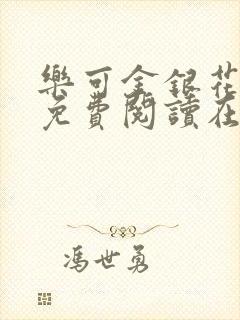 樂可金銀花
免費閱讀在
馮世勇